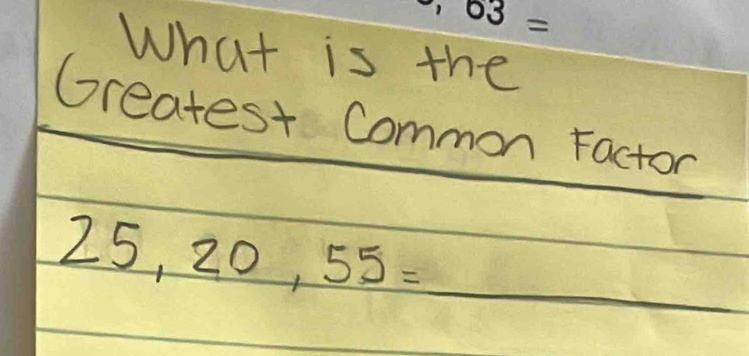 , 63 =
What is the
Greatest Common Factor
25, 20, 55 = ______